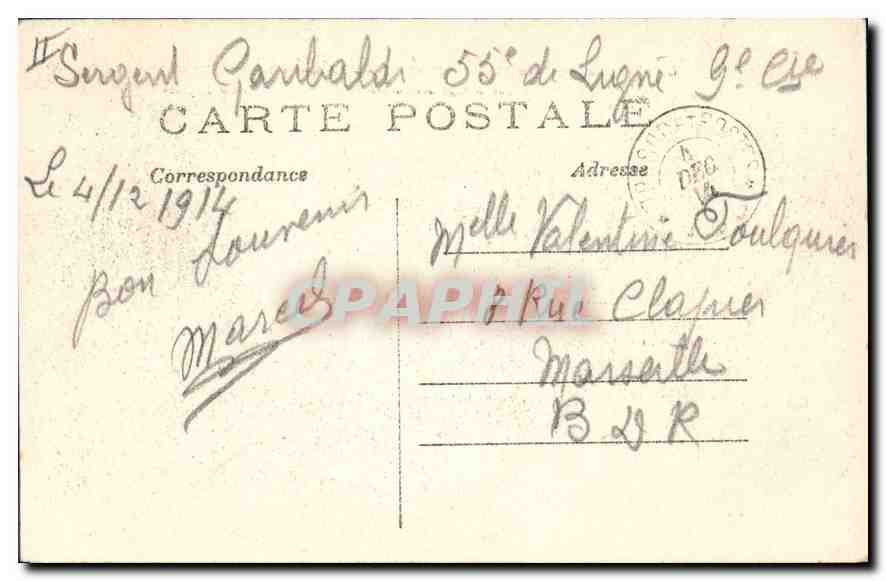 II Sergent Garibaldi 55e de Ligne 9e Cie
CARTE POSTALE
Correspondance
Adresse
TRESOR ET POSTES
4
DEC
14
Le 4/12 1914
Bon Souvenir
Marcel
Melle Valentine
Rue Clapier
Marseille
B D R
CPAPHIL